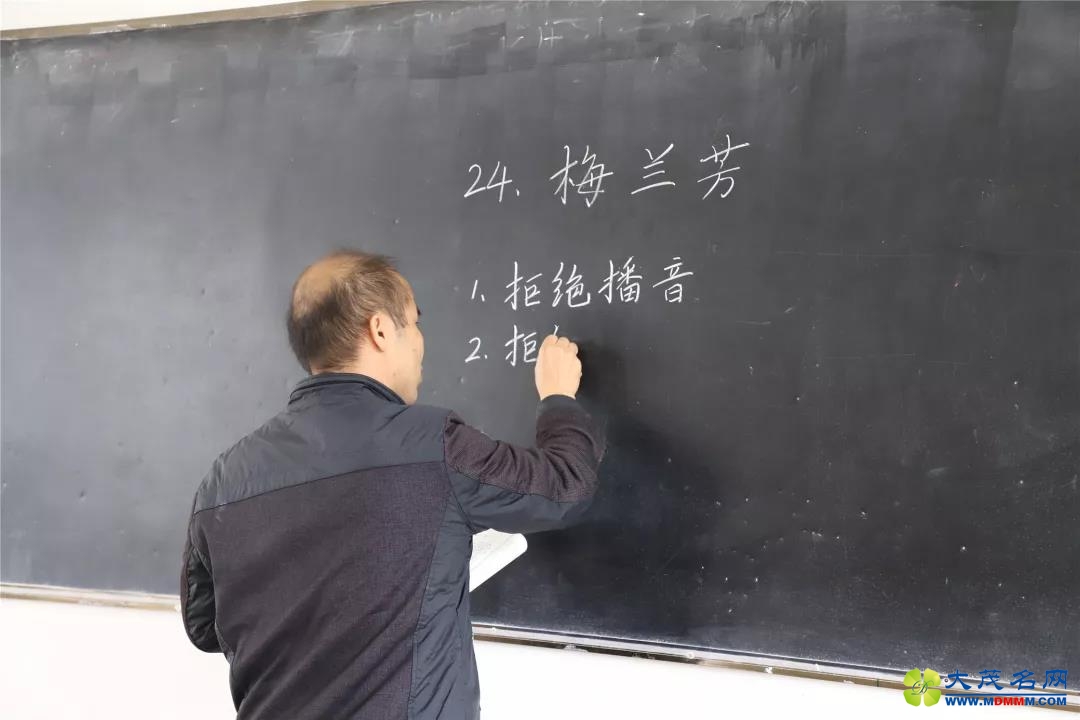 24. 梅兰芳
1. 拒绝播音
2. 拒
大茂名网
WWW.MDMMM.COM